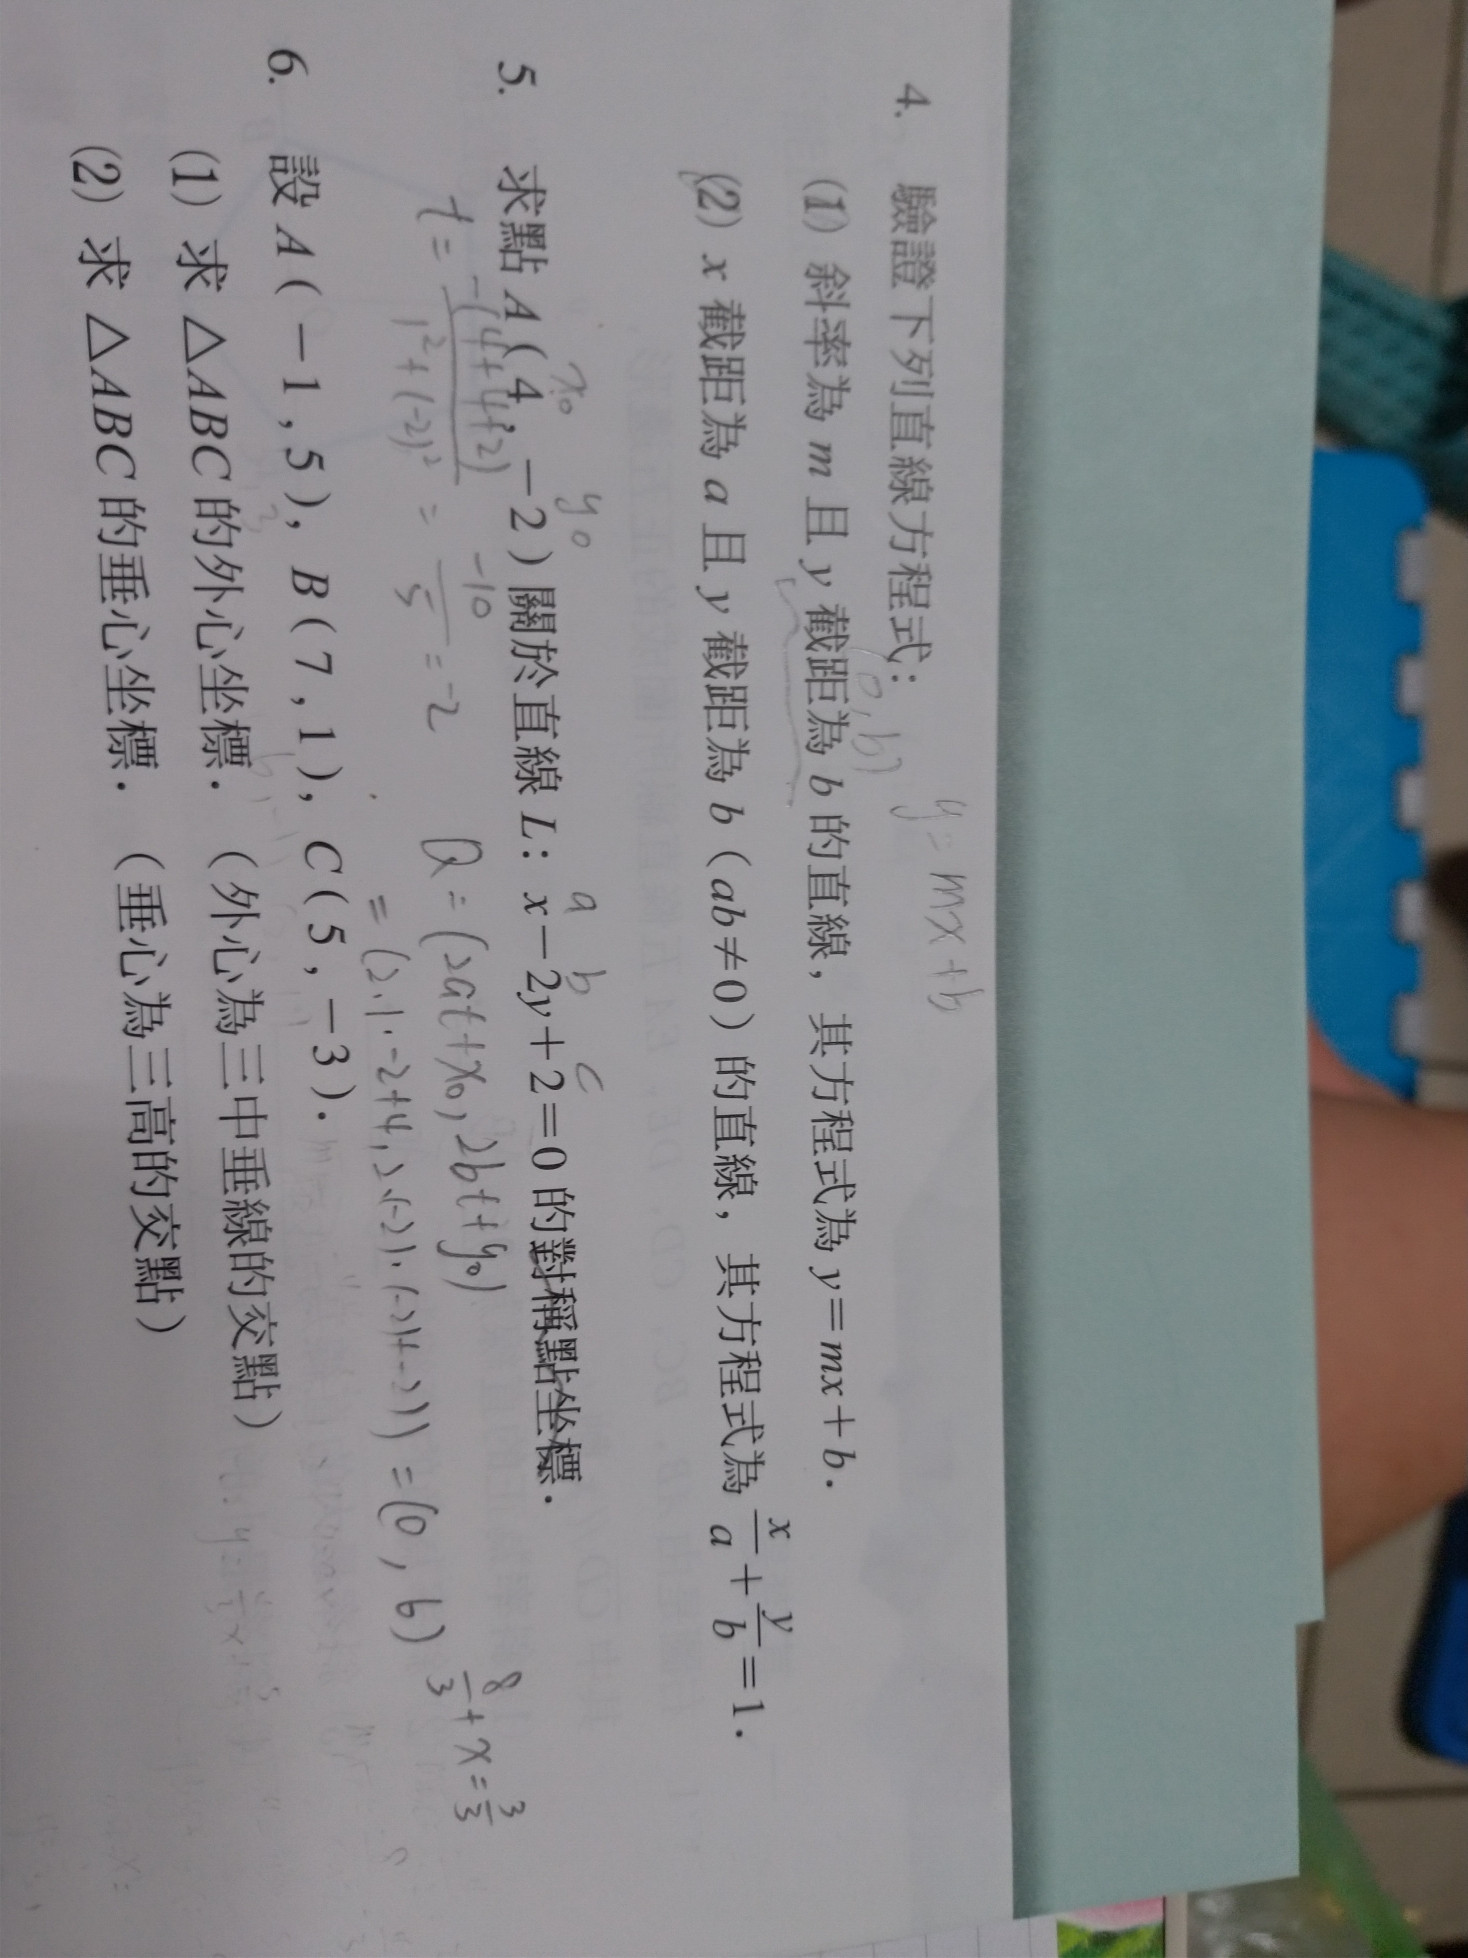 4. 驗證下列直線方程式:
y=mx+b
(0,b)
(1) 斜率為 m 且 y 截距為 b 的直線,其方程式為 y=mx+b.
(2) x 截距為 a 且 y 截距為 b(ab≠0)的直線,其方程式為 x/a+y/b=1.
x0 y0 a b c
5. 求點 A(4,-2)關於直線 L:x-2y+2=0 的對稱點坐標.
t=-(4+4+2)/1²+(-2)²=-10/5=-2 Q=(2at+x0,2bt+y0)
=(2·1·-2+4,2·(-2)·(-2)+-2))=(0,6) 8/3+x=3/3
6. 設 A(-1,5),B(7,1),C(5,-3).
(1) 求 △ABC 的外心坐標.(外心為三中垂線的交點)
(2) 求 △ABC 的垂心坐標.(垂心為三高的交點)